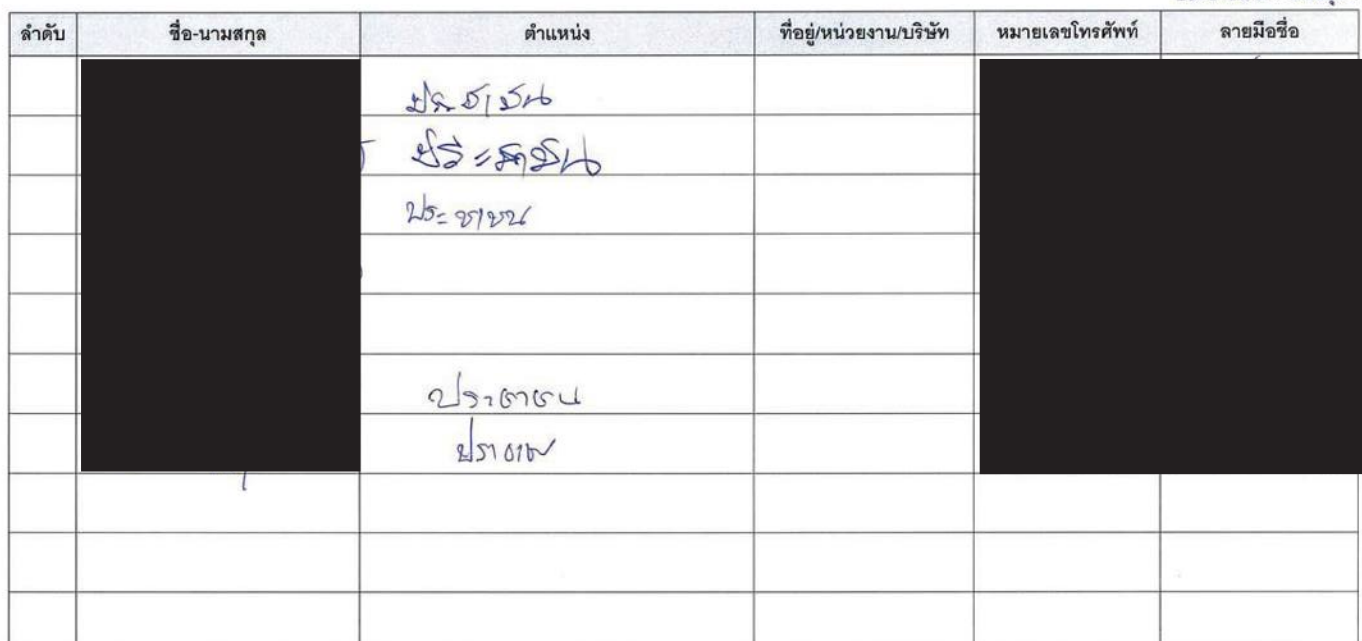 ลำดับ ชื่อ-นามสกุล ตำแหน่ง ที่อยู่/หน่วยงาน/บริษัท หมายเลขโทรศัพท์ ลายมือชื่อ
ประชาชน
ประชาชน
ประชาชน
ประชาชน